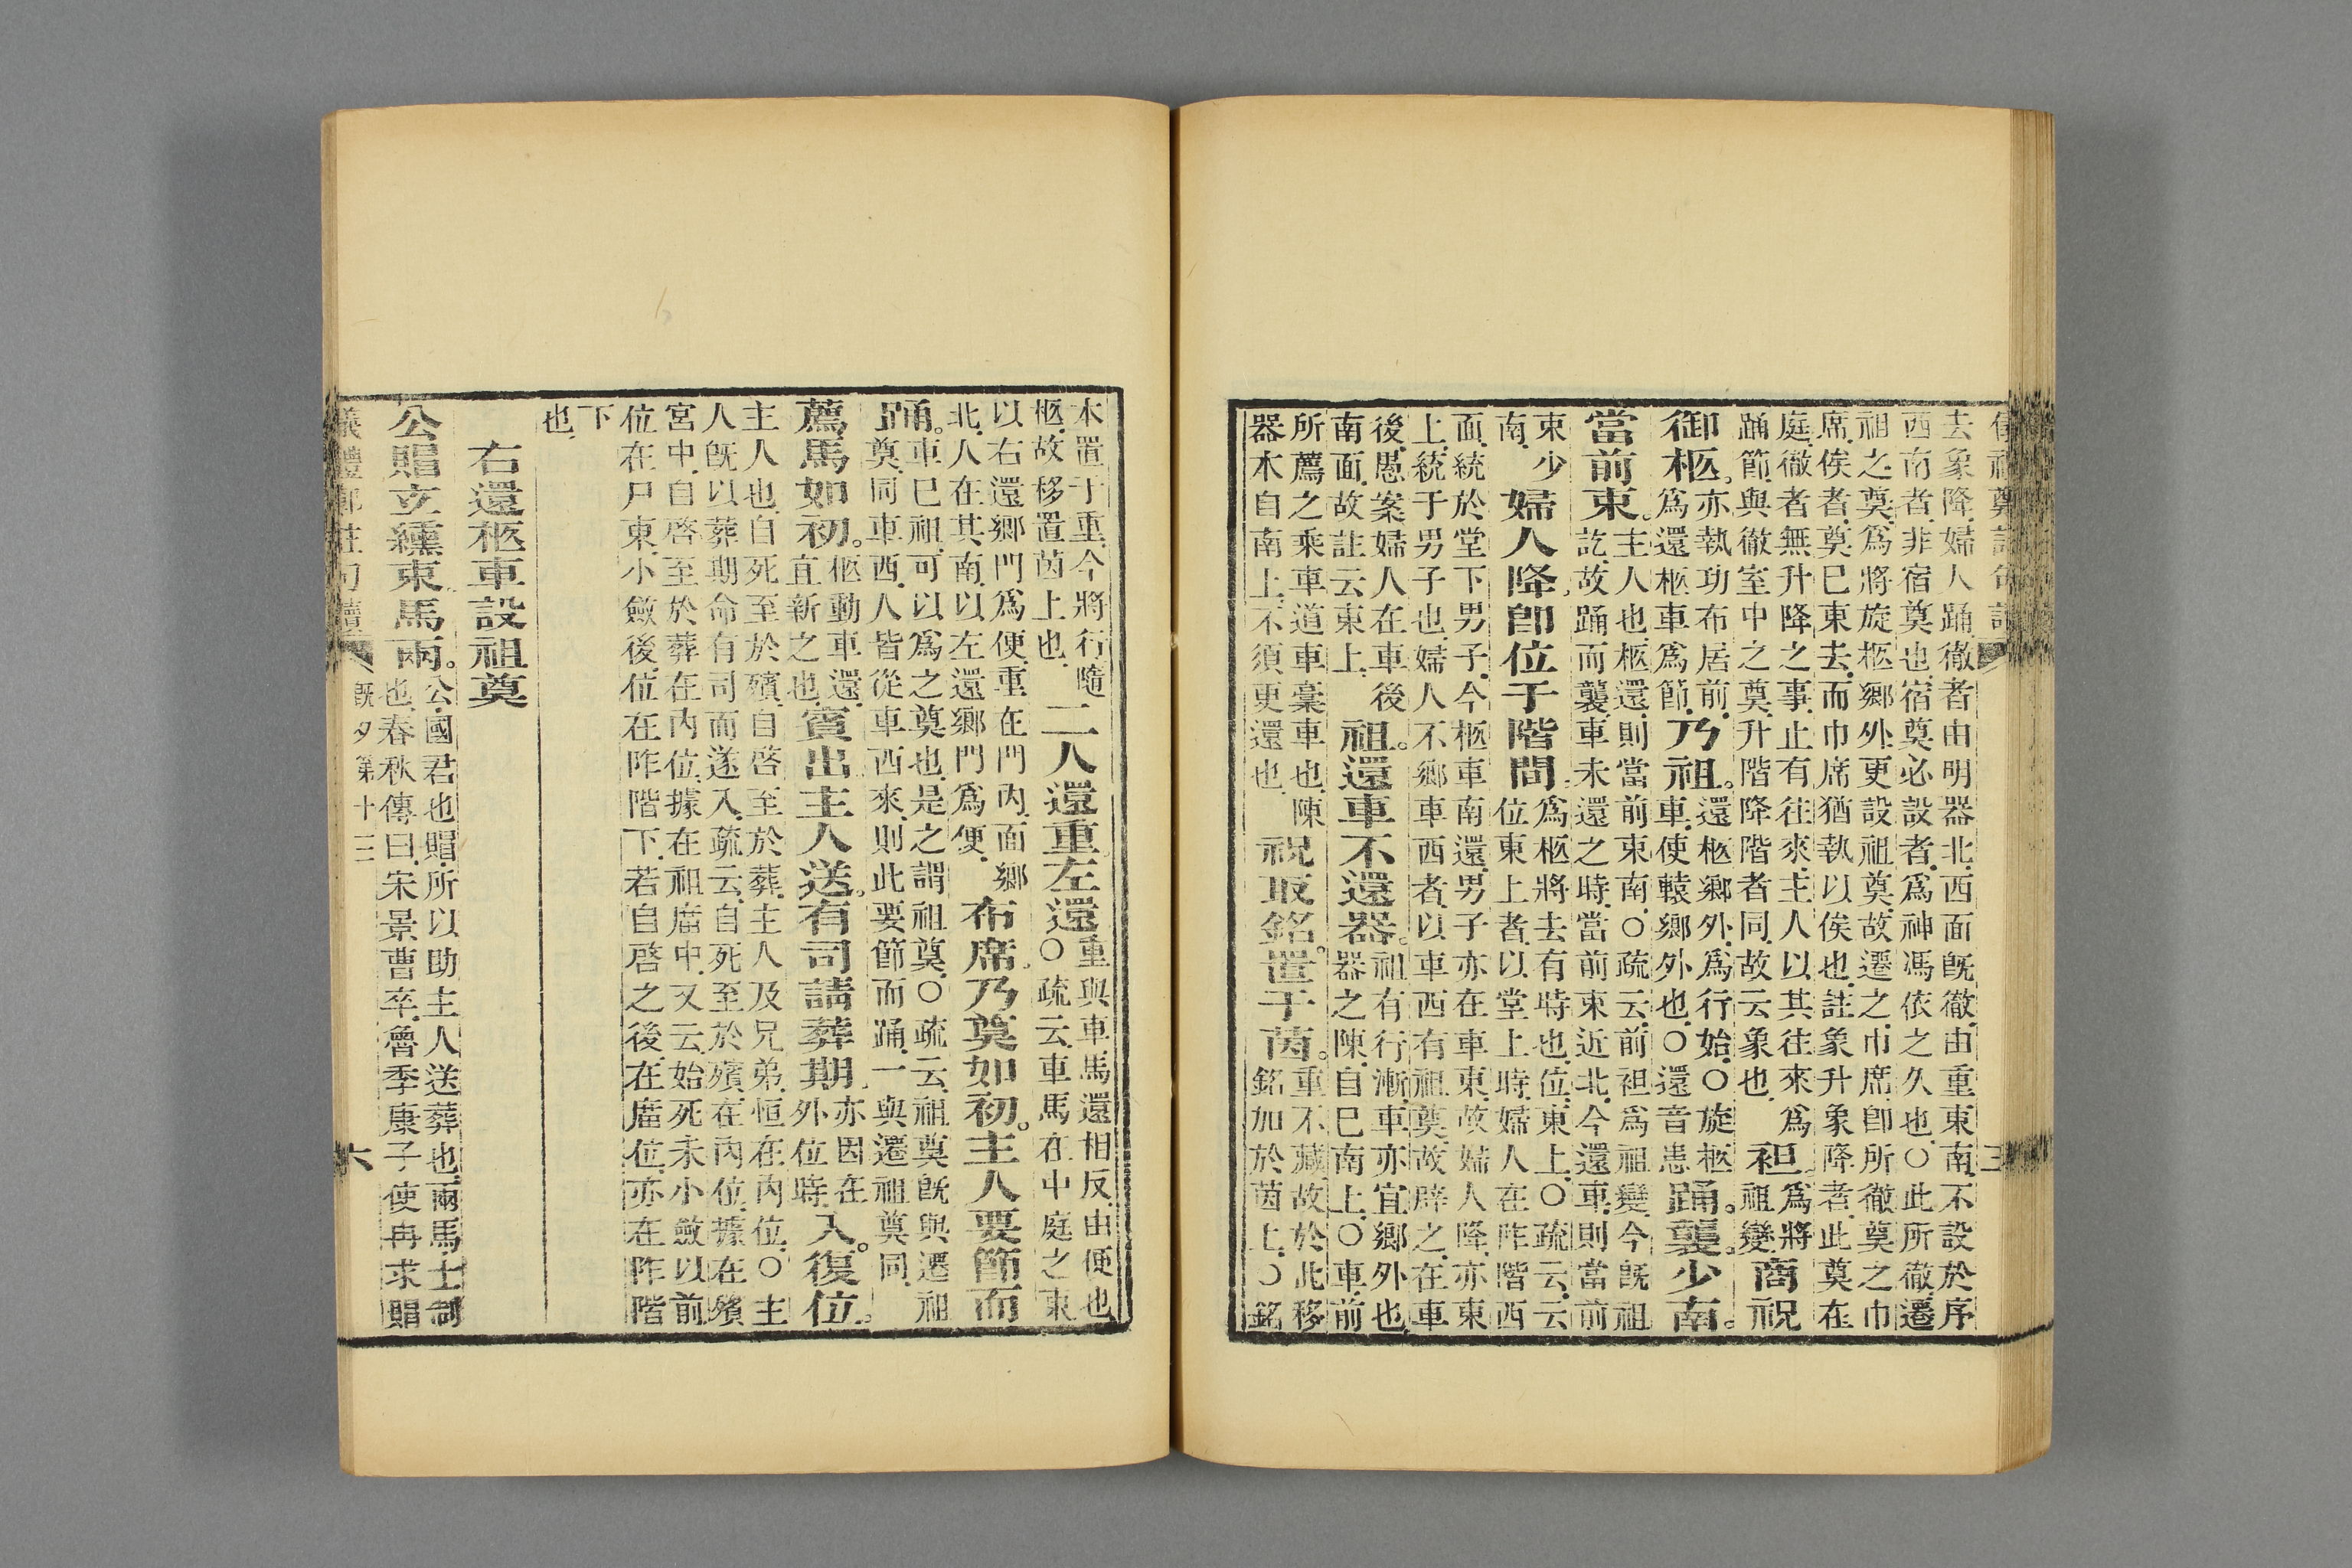 去象降婦人踊徹者由明器北西面旣徹由重東南不設於序
西南者非宿奠也宿奠必設者爲神馮依之久也○此所徹遷
祖之奠爲將旋柩鄉外更設祖奠故遷之巾席卽所徹奠之巾
席俟者奠巳東去而巾席猶執以俟也註象升象降者此奠在
庭徹者無升降之事止有往來主人以其往來爲
踊節與徹室中之奠升階降階者同故云象也
袒
爲將
祖變
商祝
御柩
亦執功布居前
爲還柩車爲節
乃祖
還柩鄉外爲行始○旋柩
車使轅鄉外也○還音患
踊襲少南
當前束
主人也柩還則當前束南○疏云前袒爲祖變今旣祖
訖故踊而襲車未還之時當前束近北今還車則當前
束少
南
婦人降卽位于階間
爲柩將去有時也位東上○疏云云
位東上者以堂上時婦人在阼階西
面統於堂下男子今柩車南還男子亦在車東故婦人降亦東
上統于男子也婦人不鄉車西者以車西有祖奠故辟之在車
後愚案婦人在車後
南面故註云東上
祖還車不還器
祖有行漸車亦宜鄉外也
器之陳自巳南上○車前
所薦之乘車道車稾車也陳
器本自南上不須更還也
祝取銘置于茵
重不藏故於此移
銘加於茵上○銘
本置于重今將行隨
柩故移置茵上也
二人還重左還
重與車馬還相反由便也
○疏云車馬在中庭之東
以右還鄉門爲便重在門內面鄉
北人在其南以左還鄉門爲便
布席乃奠如初主人要節而
踊
車巳祖可以爲之奠也是之謂祖奠○疏云祖奠旣與遷祖
奠同車西人皆從車西來則此要節而踊一與遷祖奠同
薦馬如初
柩動車還
宜新之也
賓出主人送有司請葬期
亦因在
外位時
入復位
主人也自死至於殯自啓至於葬主人及兄弟恒在內位○主
人旣以葬期命有司而遂入疏云自死至於殯在內位據在殯
宮中自啓至於葬在內位據在祖廟中又云始死未小斂以前
位在尸東小斂後位在阼階下若自啓之後在廟位亦在阼階
下
也
右還柩車設祖奠
公賵玄纁束馬兩
公國君也賵所以助主人送葬也兩馬士制
也春秋傳曰宋景曹卒魯季康子使冉求賵
旣夕第十三
六